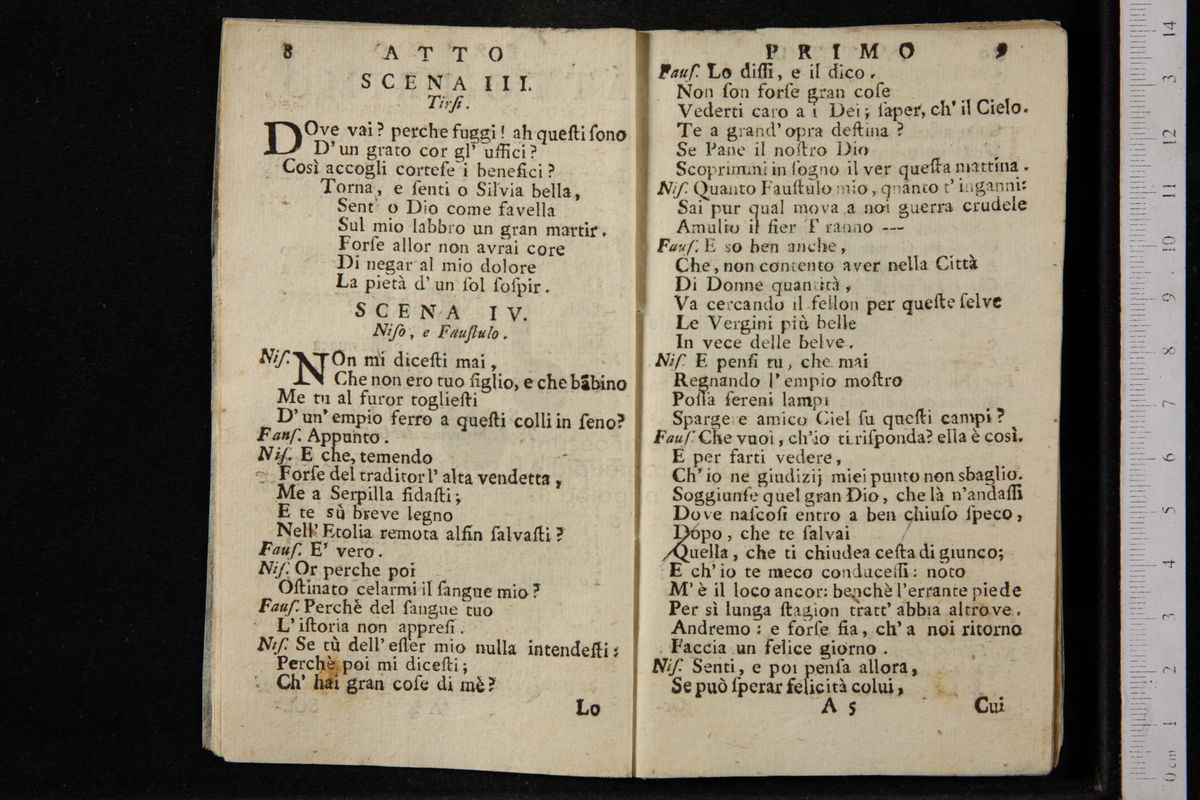 8 ATTO
SCENA III.
Tirſi.
DOve vai? perche fuggi! ah queſti ſono
D'un grato cor gl' uffici?
Così accogli corteſe i benefici?
Torna, e ſenti o Silvia bella,
Sent' o Dio come favella
Sul mio labbro un gran martir.
Forſe allor non avrai core
Di negar al mio dolore
La pietà d'un ſol ſoſpir.
SCENA IV.
Niſo, e Fauſtulo.
Niſ. NOn mi diceſti mai,
Che non ero tuo figlio, e che bābino
Me tu al furor toglieſti
D'un'empio ferro a queſti colli in ſeno?
Fauſ. Appunto.
Niſ. E che, temendo
Forſe del traditor l'alta vendetta,
Me a Serpilla fidaſti;
E te sù breve legno
Nell' Etolia remota alfin ſalvaſti?
Fauſ. E' vero.
Niſ. Or perche poi
Oſtinato celarmi il ſangue mio?
Fauſ. Perchè del ſangue tuo
L'iſtoria non appreſi.
Niſ. Se tù dell'eſſer mio nulla intendeſti:
Perchè poi mi diceſti;
Ch' hai gran coſe di mè?
Lo
PRIMO 9
Fauſ. Lo diſſi, e il dico.
Non ſon forſe gran coſe
Vederti caro a i Dei; ſaper, ch'il Cielo.
Te a grand'opra deſtina?
Se Pane il noſtro Dio
Scoprimmi in ſogno il ver queſta mattina.
Niſ. Quanto Fauſtulo mio, quanto t'inganni:
Sai pur qual mova a noi guerra crudele
Amulio il fier T ranno ---
Fauſ. E so ben anche,
Che, non contento aver nella Città
Di Donne quantità,
Va cercando il fellon per queſte ſelve
Le Vergini più belle
In vece delle belve.
Niſ. E penſi tu, che mai
Regnando l'empio moſtro
Poſſa ſereni lampi
Sparge e amico Ciel ſu queſti campi?
Fauſ. Che vuoi, ch'io ti riſponda? ella è così.
E per farti vedere,
Ch'io ne giudizij miei punto non sbaglio.
Soggiunſe quel gran Dio, che là n'andaſſi
Dove naſcoſi entro a ben chiuſo ſpeco,
Dopo, che te ſalvai
Quella, che ti chiudea ceſta di giunco;
E ch'io te meco conduceſſi: noto
M'è il loco ancor: benchè l'errante piede
Per sì lunga ſtagion tratt' abbia altrove.
Andremo: e forſe fia, ch'a noi ritorno
Faccia un felice giorno.
Niſ. Senti, e poi penſa allora,
Se può ſperar felicità colui,
A 5 Cui
0 cm 1 2 3 4 5 6 7 8 9 10 11 12 3 14